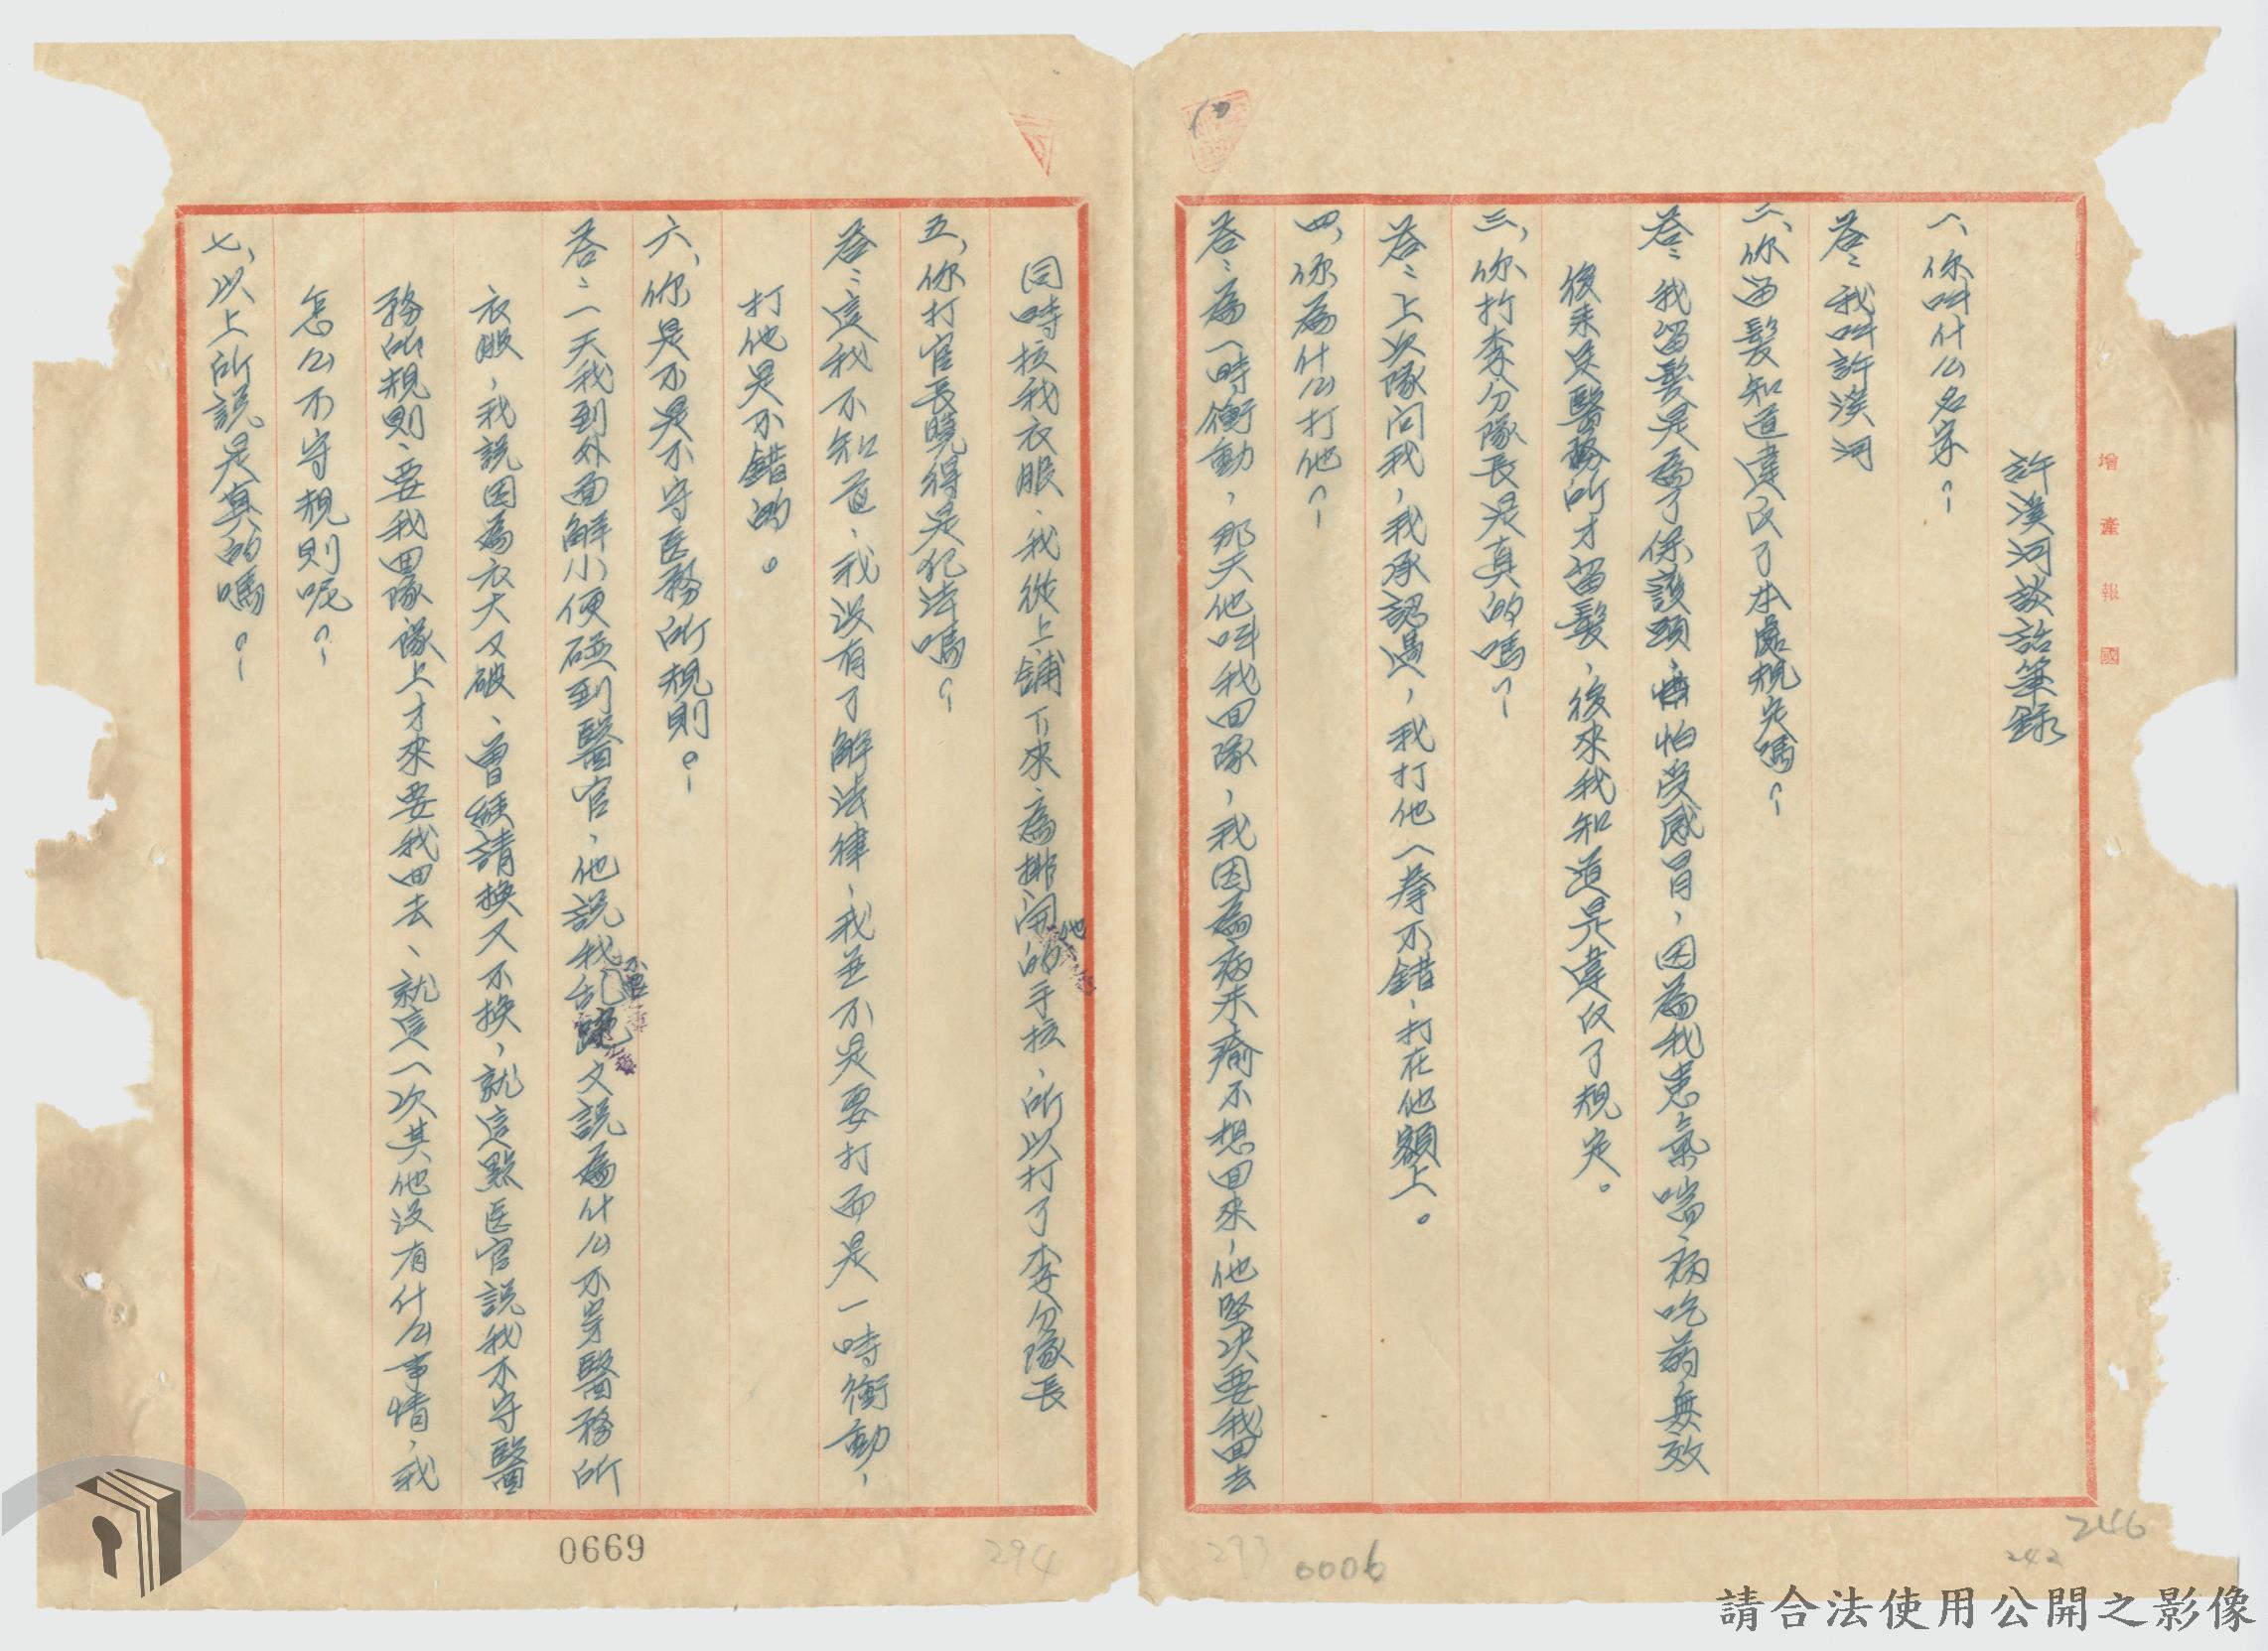 增產報國
許溪河談話筆錄
一、你叫什么名字？
答：我叫許溪河
二、你留髮知道違反了本處規定嗎？
答：我留髮是為了保護頭，怕受感冒，因為我患氣喘病吃葯無效
後來送醫務所才留髮，後來我知道是違反了規定。
三、你打李分隊長是真的嗎？
答：上次隊問我，我承認過，我打他一拳不錯，打在他額上。
四、你為什么打他？
答：為一時衝動，那天他叫我回隊，我因為病未癒不想回來，他堅決要我回去
同時拉我衣服、我從上舖下來、為挪開他的手拉、所以打了李分隊長
五、你打官長曉得是犯法嗎？
答：這我不知道、我没有了解法律、我並不是要打而是一時衝動，
打他是不錯的。
六、你是不是不守医務所規則？
答：一天我到外面解小便碰到醫官，他說我不要乱跑又說為什么不穿醫務所
衣服，我說因為衣大又破、曾經請換又不換，就這點医官說我不守醫
務所規則、要我回隊隊上才來要我回去、就這一次其他没有什么事情，我
怎么不守規則呢？
七、以上所說是真的嗎？
0669
294
293
0006
242
246
請合法使用公開之影像